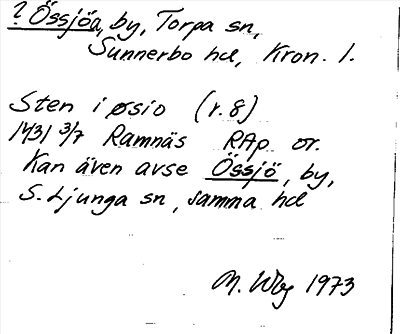 ? Össjöa, by, Torpa sn,
Sunnerbo hd, Kron. l.
Sten i øsio (r. 8)
1431 3/7 Ramnäs RAp or.
Kan även avse Össjö, by,
S. Ljunga sn, samma hd
M. Wbg 1973